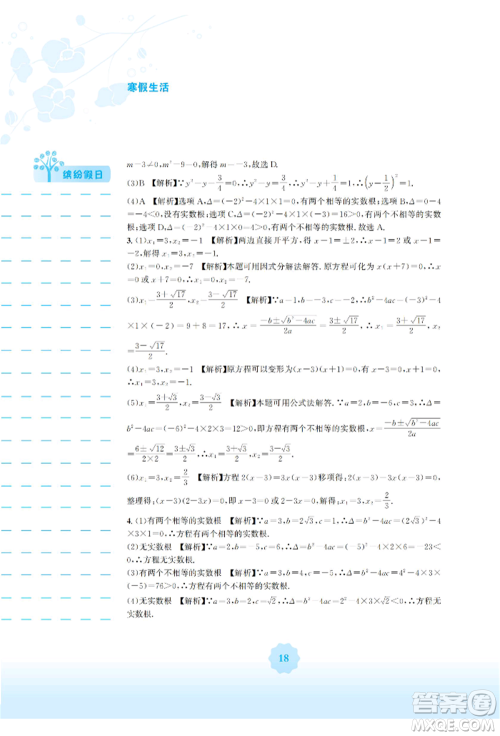 寒假生活
缤纷假日
m-3≠0,m²-9=0,解得m=-3,故选D.
(3)B 【解析】∵y²-y-3/4=0,∴y²-y=3/4,∴y²-y+1/4=1,∴(y-1/2)²=1.
(4)A 【解析】选项A,Δ=(-2)²-4×1×1=0,有两个相等的实数根;选项B,Δ=0-
=-4<0,没有实数根;选项C,Δ=(-2)²-4×1×3=-8<0,没有实数根;
选项D,Δ=(-2)²-4×1×(-3)=16>0,有两个不相等的实数根.
3.(1)x₁=3,x₂=1 【解析】两边直接开平方,得x-1=±2,∴x₁=3,x₂=-1.
(2)x₁=0,x₂=-7 【解析】本题可用因式分解法解答.原方程可化为x(x+7)=0,
∴x₁=0,x₂=-7.
(3)x₁=(3+√17)/2,x₂=(3-√17)/2 【解析】∵a=1,b=-3,c=-2,∴b²-4ac=(-3)²-4
×1×(-2)=9+8=17,∴x=(-b±√(b²-4ac))/2a=(3±√17)/2,∴x₁=(3+√17)/2,x₂=
(3-√17)/2.
(4)x₁=3,x₂=1 【解析】原方程可以变形为(x-3)(x-1)=0,∴x-3=0或x-1=
0,∴x₁=3,x₂=1.
(5)x₁=(3+√3)/2,x₂=(3-√3)/2 【解析】本题可用公式法解答.∵a=2,b=-6,c=3,∴
b²-4ac=(-6)²-4×2×3=12>0,∴方程有两个不相等的实数根,∴x=(-b±√(b²-4ac))/2a
=(6±√12)/(2×2)=(3±√3)/2,∴x₁=(3+√3)/2,x₂=(3-√3)/2.
(6)x₁=3,x₂=2/3 【解析】方程2(x-3)=3x(x-3)移项得2(x-3)-3x(x-3)=0,
整理得(x-3)(2-3x)=0,∴x-3=0或2-3x=0,解得x₁=3,x₂=2/3.
4.(1)有两个相等的实数根 【解析】∵a=2,b=2√3,c=3,∴Δ=b²-4ac=(2√3)²-4
×2×3=-12,∴方程有两个相等的实数根.
(2)无实数根 【解析】∵a=3,b=2,c=2,∴Δ=b²-4ac=4-4×3×2=-20<0,∴
方程无实数根.
(3)有两个不相等的实数根 【解析】∵a=3,b=4,c=-5,∴Δ=b²-4ac=16-4×3×
(-5)=76>0,∴方程有两个不相等的实数根.
(4)无实数根 【解析】∵a=√3,b=√2,c=√2,∴Δ=b²-4ac=(√2)²-4×√3×√2=2-
4√6<0,∴方程无实数根.
18